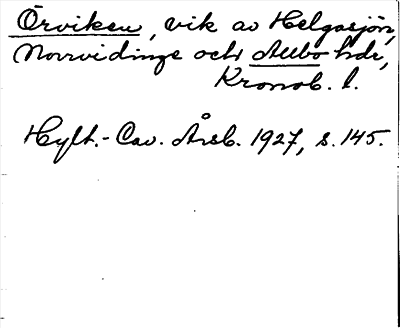 Örviken, vik av Helgasjön,
Norrvidinge och Allbo hdr,
Kronob. l.
Hylt.-Cav. Årsb. 1927, s. 145.